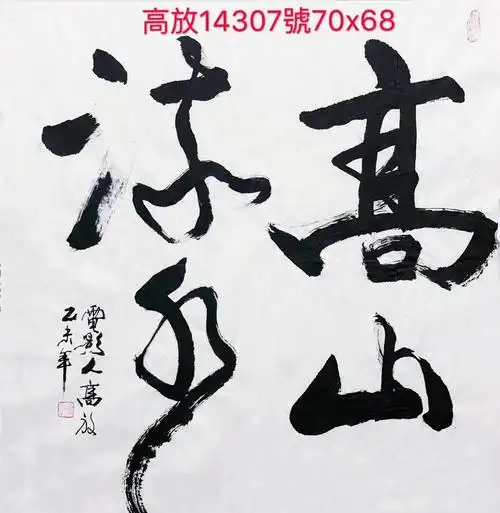 高放14307號70x68
髙山
流水
電影人高放
乙未年